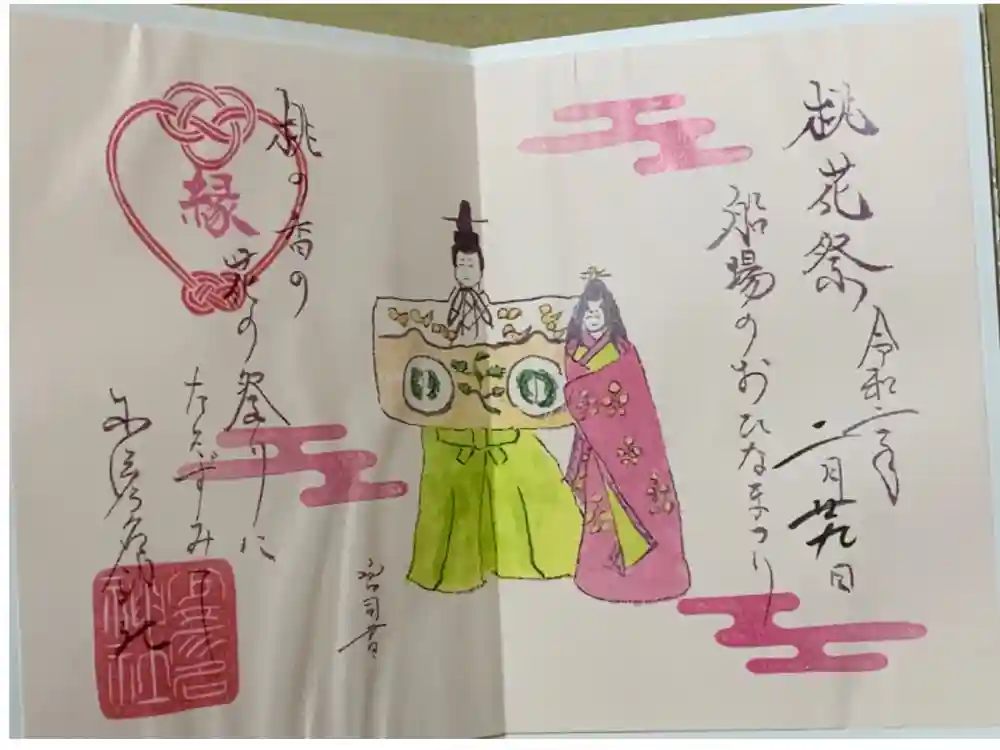 桃花祭 令和二年 二月廿九日
船場のおひなまつり
宮司書
桃の香の
の祭りに
たたずみて
縁
神社